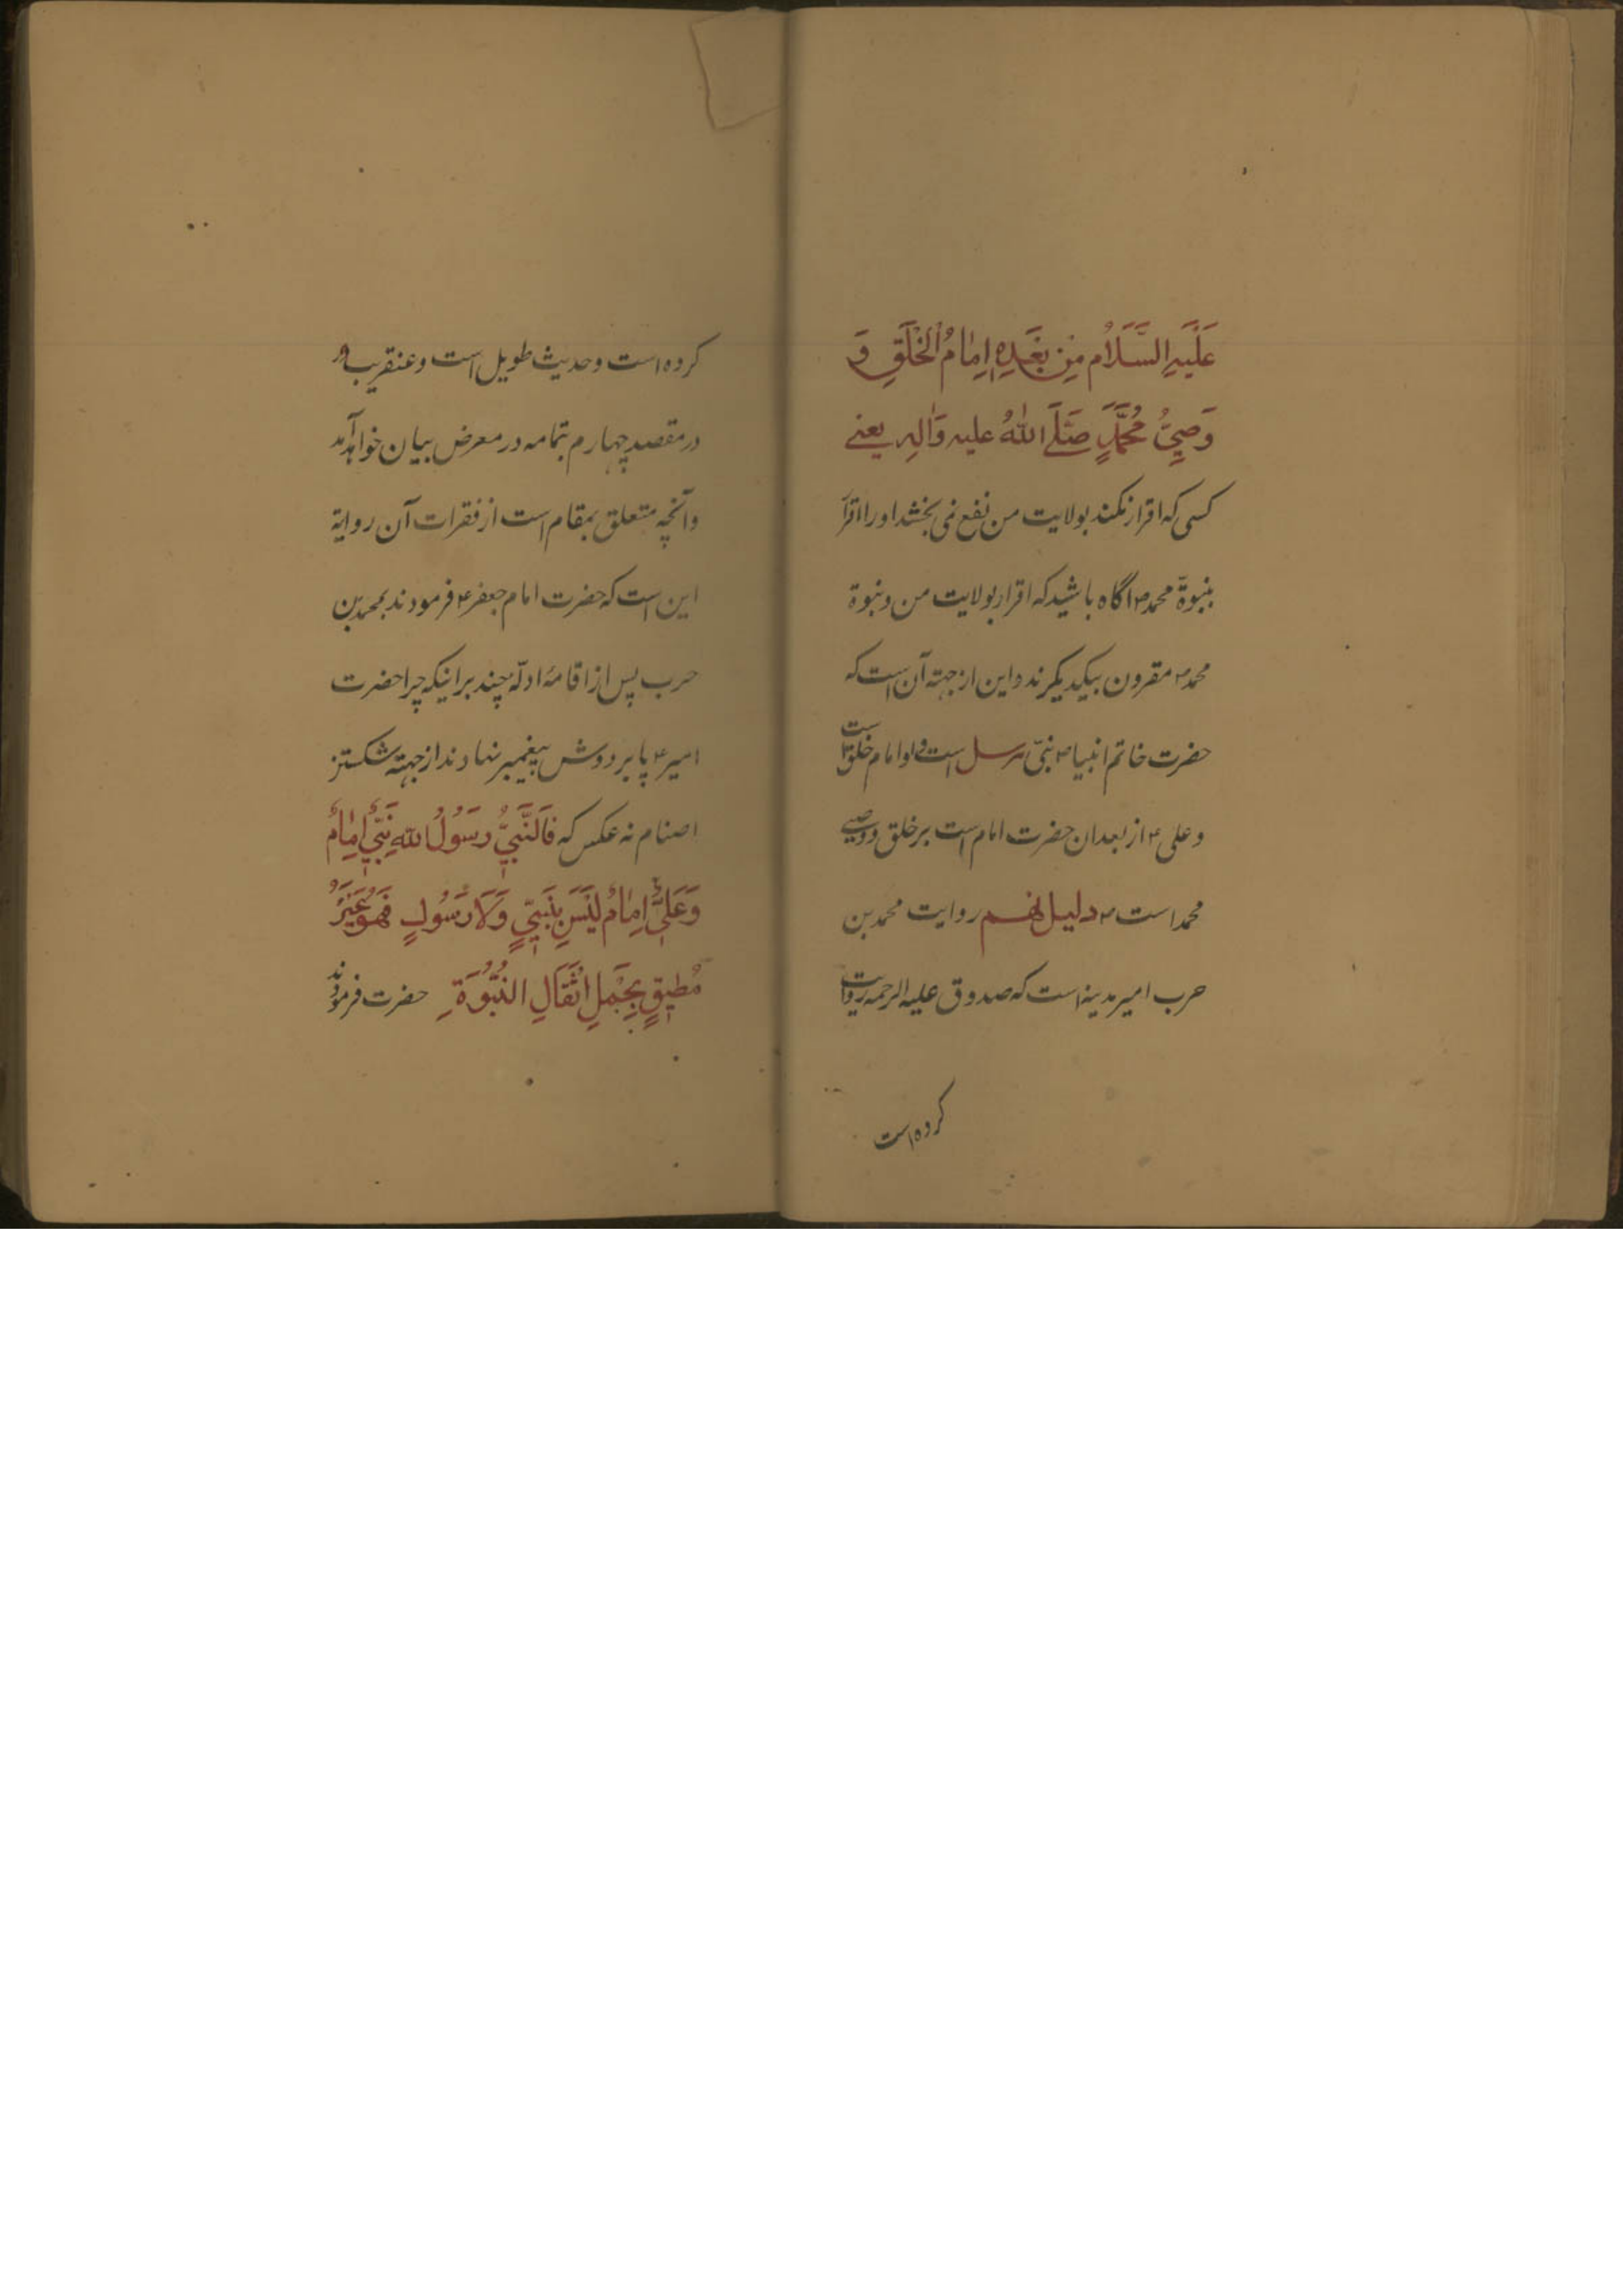 عَلَيْهِ السَّلَامُ مِنْ بَعْدِهِ اِمَامُ الْخَلْقِ وَ
وَصِيُّ مُحَمَّدٍ صَلَّى اللهُ عليه وَآلِهِ يعنے
كسى كه اقرار نكند بولايت من نفع نمى بخشد او را اقرار
بنبوة محمد ص آگاه باشيد كه اقرار بولايت من و نبوة
محمد ص مقرون بيكديگرند و اين از جهته آن است كه
حضرت خاتم انبيا ص نبىّ مرسل است و او امام خلق است
و على ع از بعد ان حضرت امام است بر خلق و وصى
محمد است ص دليل نهم روايت محمد بن
حرب امير مدينه است كه صدوق عليه الرحمه روايت
كرده است
كرده است و حديث طويل است و عنقريب
در مقصد چهارم بتمامه در معرض بيان خواهد آمد
و آنچه متعلق بمقام است از فقرات آن رواية
اين است كه حضرت امام جعفر ع فرمودند بمحمد بن
حرب پس از اقامهٔ ادلّهٔ چند بر اينكه چرا حضرت
امير ع پا بر دوش پيغمبر نهادند از جهته شكستن
اصنام نه عكس كه فَالنَّبِيُّ رَسُولُ اللهِ نَبِيٌّ اِمَامٌ
وَعَلِيٌّ اِمَامٌ لَيْسَ بِنَبِيٍّ وَلَا رَسُولٍ فَهُوَ غَيْرُ
مُطِيقٍ بِحَمْلِ اَثْقَالِ النُّبُوَّةِ حضرت فرمودند